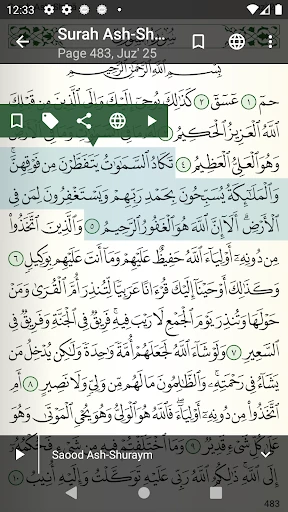 12:33
Surah Ash-Sh...
Page 483, Juz' 25
بِسْمِ اللَّهِ الرَّحْمَٰنِ الرَّحِيمِ
حمٓ ١ عٓسٓقٓ ٢ كَذَٰلِكَ يُوحِىٓ إِلَيْكَ وَإِلَى ٱلَّذِينَ مِن قَبْلِكَ
ٱللَّهُ ٱلْعَزِيزُ ٱلْحَكِيمُ
وَهُوَ ٱلْعَلِىُّ ٱلْعَظِيمُ ٤ تَكَادُ ٱلسَّمَٰوَٰتُ يَتَفَطَّرْنَ مِن فَوْقِهِنَّ ۚ
وَٱلْمَلَٰٓئِكَةُ يُسَبِّحُونَ بِحَمْدِ رَبِّهِمْ وَيَسْتَغْفِرُونَ لِمَن فِى
ٱلْأَرْضِ ۗ أَلَآ إِنَّ ٱللَّهَ هُوَ ٱلْغَفُورُ ٱلرَّحِيمُ ٥ وَٱلَّذِينَ ٱتَّخَذُوا۟
مِن دُونِهِۦٓ أَوْلِيَآءَ ٱللَّهُ حَفِيظٌ عَلَيْهِمْ وَمَآ أَنتَ عَلَيْهِم بِوَكِيلٍ ٦
وَكَذَٰلِكَ أَوْحَيْنَآ إِلَيْكَ قُرْءَانًا عَرَبِيًّا لِّتُنذِرَ أُمَّ ٱلْقُرَىٰ وَمَنْ
حَوْلَهَا وَتُنذِرَ يَوْمَ ٱلْجَمْعِ لَا رَيْبَ فِيهِ ۚ فَرِيقٌ فِى ٱلْجَنَّةِ وَفَرِيقٌ فِى
ٱلسَّعِيرِ ٧ وَلَوْ شَآءَ ٱللَّهُ لَجَعَلَهُمْ أُمَّةً وَٰحِدَةً وَلَٰكِن يُدْخِلُ مَن
يَشَآءُ فِى رَحْمَتِهِۦ ۚ وَٱلظَّٰلِمُونَ مَا لَهُم مِّن وَلِىٍّ وَلَا نَصِيرٍ ٨
أَمِ ٱتَّخَذُوا۟ مِن دُونِهِۦٓ أَوْلِيَآءَ ۖ فَٱللَّهُ هُوَ ٱلْوَلِىُّ وَهُوَ يُحْىِ ٱلْمَوْتَىٰ وَهُوَ
عَلَىٰ كُلِّ شَىْءٍ قَدِيرٌ ٩ وَمَا ٱخْتَلَفْتُمْ فِيهِ مِن شَىْءٍ فَحُكْمُهُۥٓ
Saood Ash-Shuraym
إِلَى ٱللَّهِ ۚ ذَٰلِكُمُ ٱللَّهُ رَبِّى عَلَيْهِ تَوَكَّلْتُ وَإِلَيْهِ أُنِيبُ ١٠
483